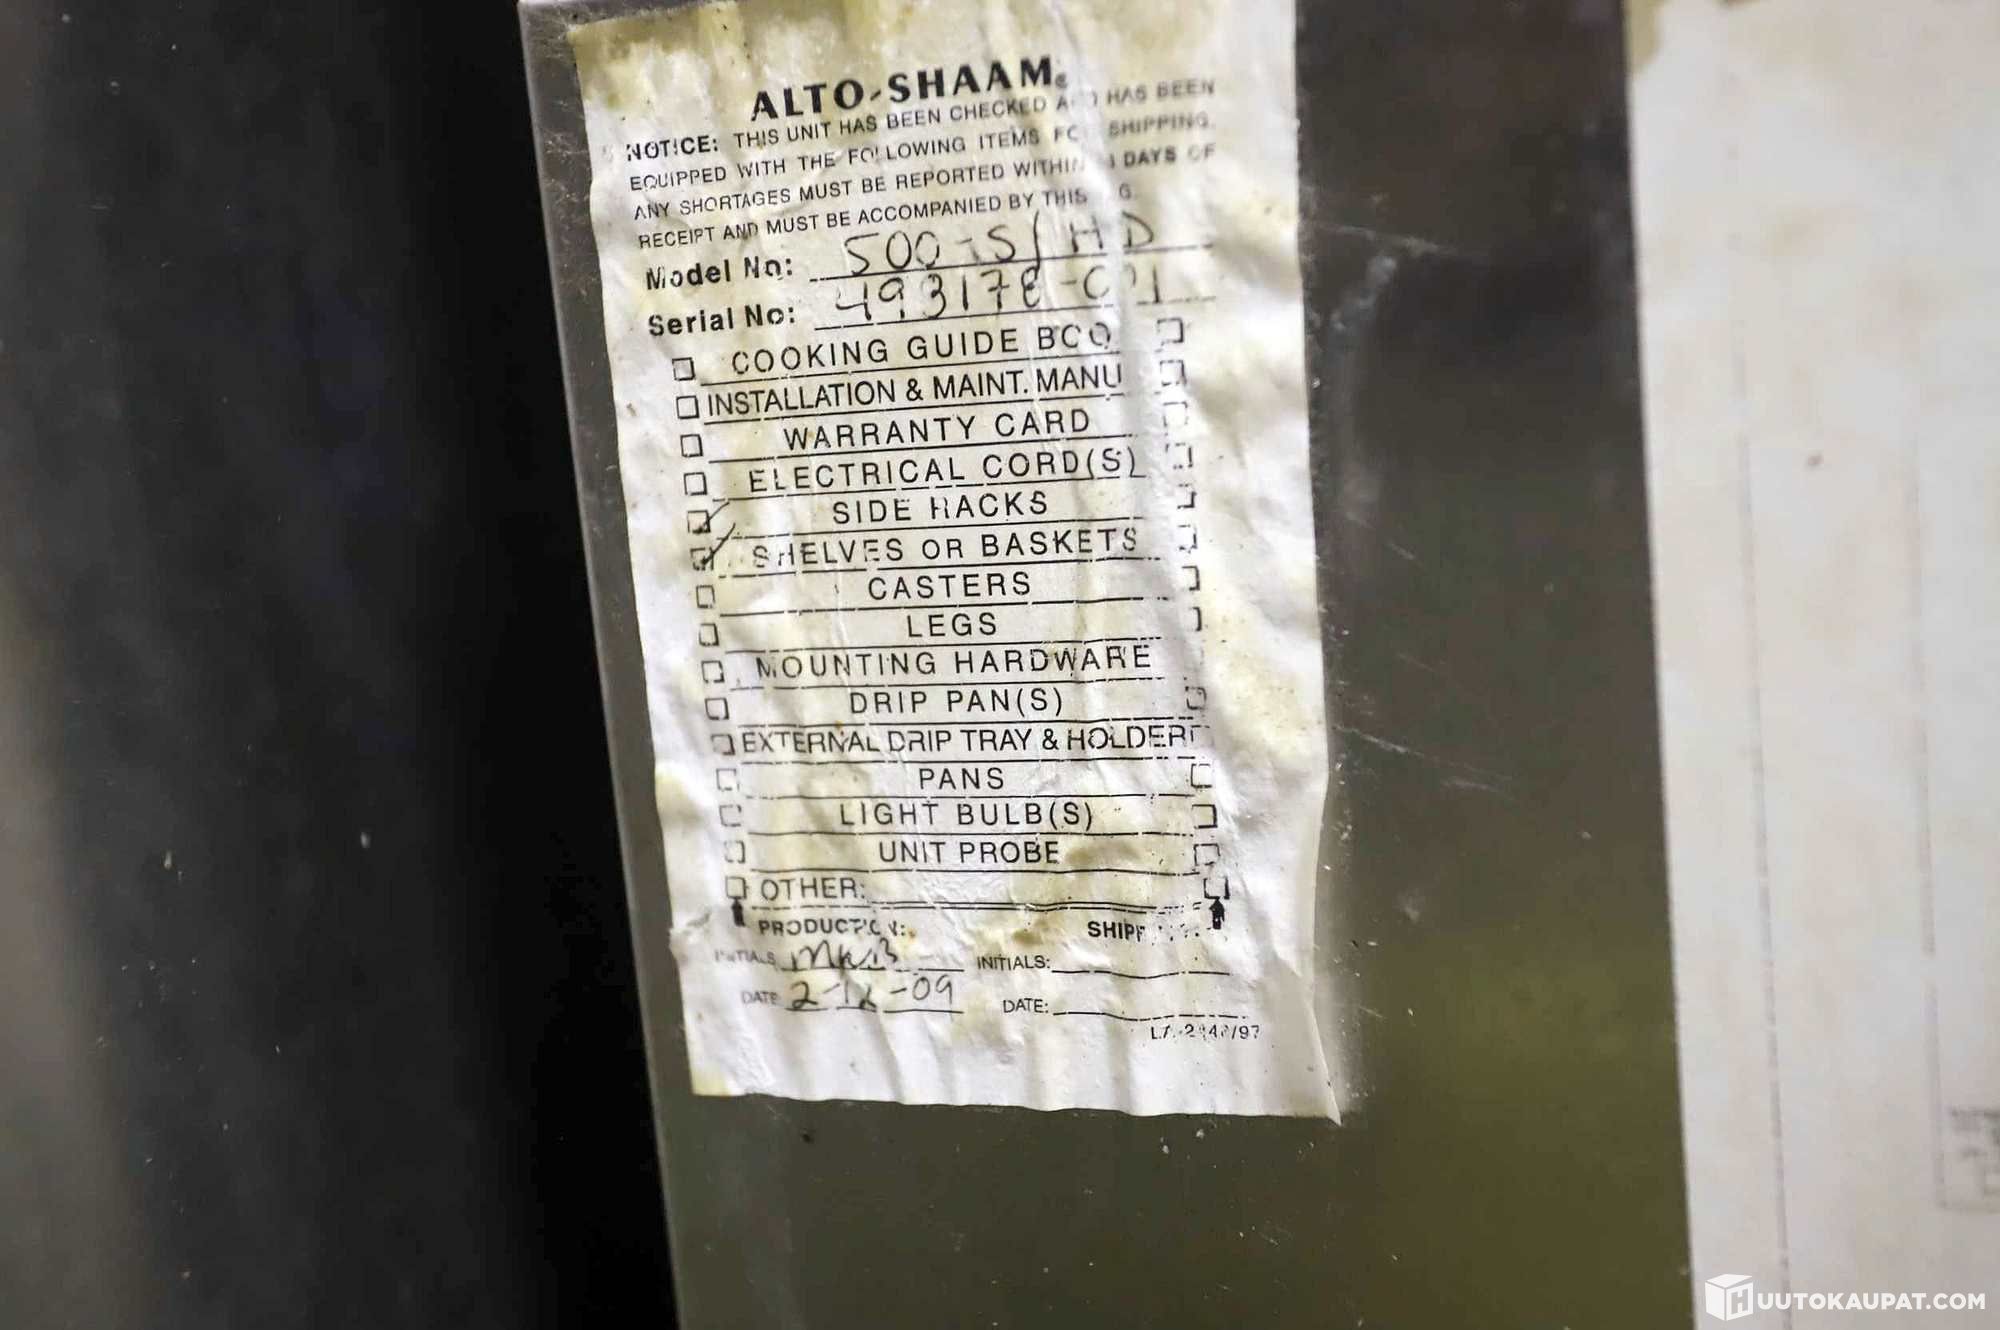 ALTO-SHAAM®
NOTICE: THIS UNIT HAS BEEN CHECKED AND HAS BEEN
EQUIPPED WITH THE FOLLOWING ITEMS FOR SHIPPING.
ANY SHORTAGES MUST BE REPORTED WITHIN DAYS OF
RECEIPT AND MUST BE ACCOMPANIED BY THIS
Model No: 500-S/HD
Serial No:
COOKING GUIDE
INSTALLATION & MAINT. MANU
WARRANTY CARD
ELECTRICAL CORD(S)
SIDE RACKS
SHELVES OR BASKETS
CASTERS
LEGS
MOUNTING HARDWARE
DRIP PAN(S)
EXTERNAL DRIP TRAY & HOLDER
PANS
LIGHT BULB(S)
UNIT PROBE
OTHER:
PRODUCTION:
INITIALS
DATE 2-12-09
SHIPP
INITIALS:
DATE:
HUUTOKAUPAT.COM